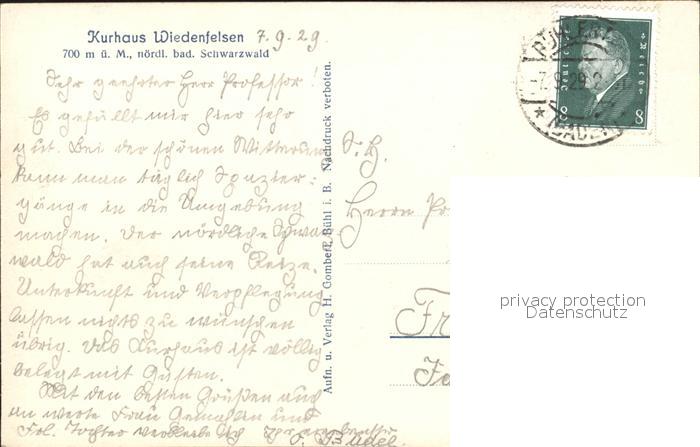 Kurhaus Wiedenfelsen 7.9.29
700 m ü. M., nördl. bad. Schwarzwald
Sehr geehrter Herr Professor!
Es gefällt mir hier sehr
gut. Bei der schönen Witterung
kann man täglich Spazier-
gänge in die Umgebung
machen. Der nördliche Schwarz-
wald hat auch seine Reize.
Unterkunft und Verpflegung
lassen nichts zu wünschen
übrig. Das Kurhaus ist völlig
belegt mit Gästen.
Mit den besten Grüßen auch
an werte Frau Gemahlin und
Frl. Tochter verbleibe ich
Aufn. u. Verlag H. Gomber, Bühl i. B. Nachdruck verboten.
S. H.
Herrn Pr
Fr
Deutsches Reich
8 8
7.9.29
BADEN
privacy protection
Datenschutz